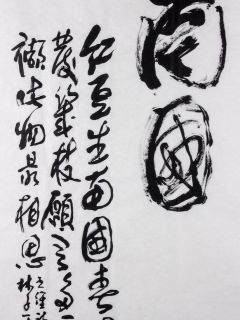 南國
紅豆生南國春
發幾枝願君多
擷此物最相思